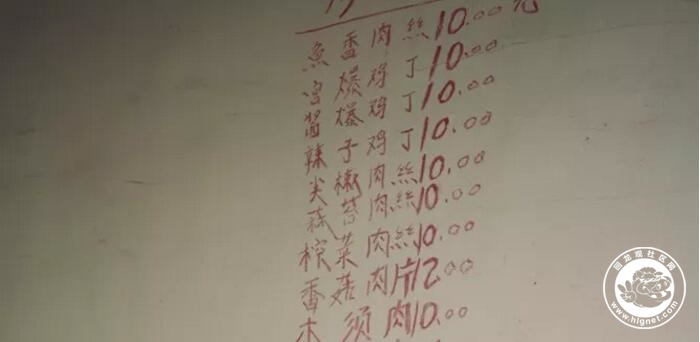 魚香肉絲10.00元
宫爆鸡丁10.00
醬爆鸡丁10.00
辣子鸡丁10.00
尖椒肉絲10.00
蒜苔肉絲10.00
榨菜肉絲10.00
香菇肉片12.00
木须肉10.00
回龙观社区网
www.hlgnet.com